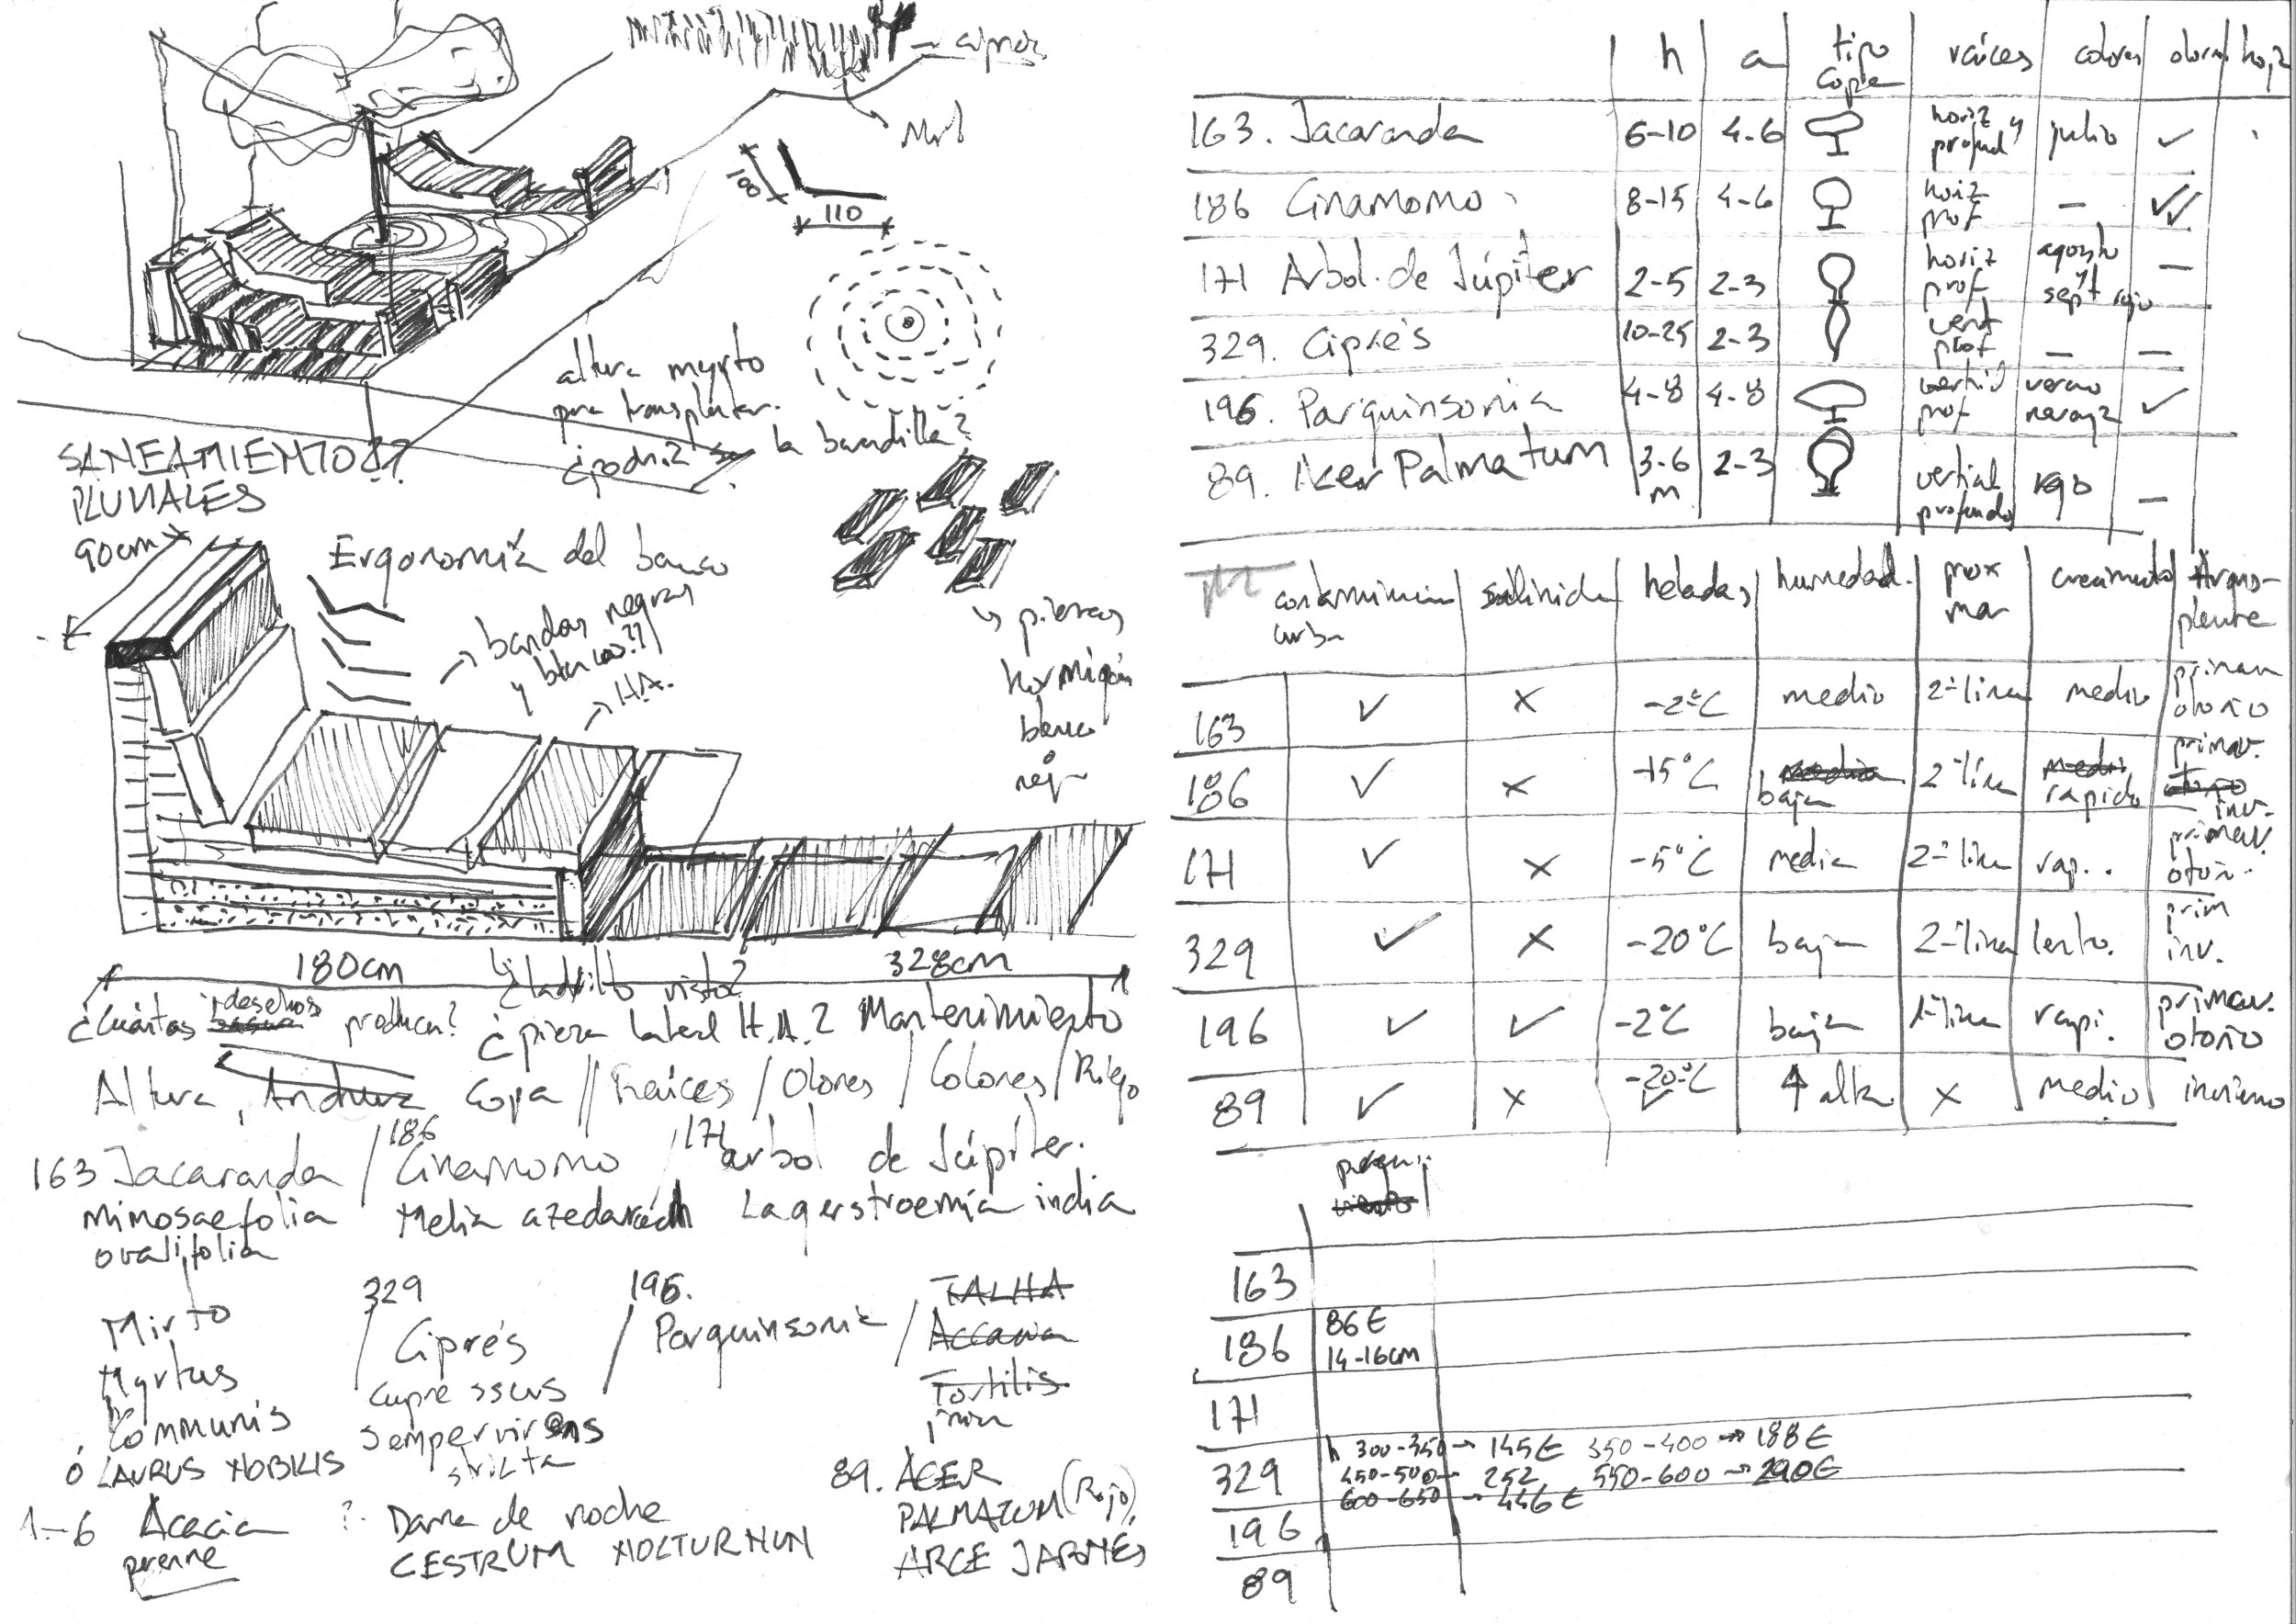 ciprés
100
110
altura myrto
para transplantar.
¿podría la barandilla?
SANEAMIENTO??
PLUVIALES
90cm
Ergonomía del banco
bandas negras
y blancas??
H.A.
piezas
hormigón
blanco
180cm
¿ladrillo visto?
328cm
¿Cuántas desechos producen?
¿pieza lateral H.A.? Mantenimiento
Altura, Anchura Copa // Raíces / Olores / Colores / Riego
163 Jacaranda / 186 Cinamomo / 171 arbol de Júpiter.
mimosaefolia Melia azedarach Lagerstroemia india
ovalifolia
Mirto / 329 Ciprés / 196. Parquinsonia / TALHA
Myrtus Cupressus Accacia
Communis sempervirens Tortilis
ó LAURUS NOBILIS stricta
89. ACER
PALMATUM (Rojo),
ARCE JAPONÉS
1-6 Acacia ? Dama de noche
perenne CESTRUM NOCTURNUM
h a tipo copa raíces colores olores hoja
163. Jacaranda 6-10 4-6 horiz y profund julio ✓
186 Cinamomo 8-15 4-6 horiz prof — ✓✓
171 Arbol de Júpiter 2-5 2-3 horiz prof agosto y sept rojo —
329. Ciprés 10-25 2-3 vert prof — —
196. Parquinsonia 4-8 4-8 vertical prof verano naranja ✓
89. Acer Palmatum 3-6 m 2-3 vertical profundo rojo —
contaminación urba salinidad heladas humedad. prox mar crecimiento transplante
163 ✓ x -2ºC medio 2ª línea medio primav otoño
186 ✓ x -15ºC media baja 2ª lín medio rapido primav. otoño inv.
171 ✓ x -5ºC media 2ª línea rap.. primav. otoñ.
329 ✓ x -20ºC baja 2ª línea lento. prim inv.
196 ✓ ✓ -2ºC baja 1ª línea rapi. primav. otoño
89 ✓ x -20ºC ✓ alta x medio invierno
viento
163
186 86€
14-16cm
171
329 h 300-350 → 145€ 350-400 → 188€
450-500 → 252 550-600 → 290€
600-650 → 446€
196
89